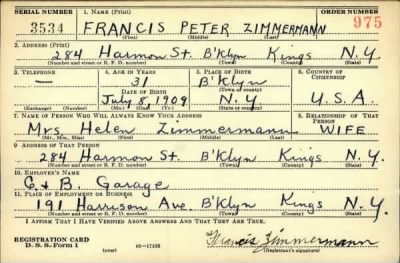 SERIAL NUMBER 1. NAME (Print) ORDER NUMBER
3534 FRANCIS PETER ZIMMERMANN 975
(First) (Middle) (Last)
2. ADDRESS (Print)
284 Harmon St. B'klyn Kings N.Y.
(Number and street or R. F. D. number) (Town) (County) (State)
3. TELEPHONE 4. AGE IN YEARS 5. PLACE OF BIRTH 6. COUNTRY OF CITIZENSHIP
— 31 B'klyn
DATE OF BIRTH (Town or county)
July 8, 1909 N.Y U.S.A.
(Exchange) (Number) (Mo.) (Day) (Yr.) (State or country)
7. NAME OF PERSON WHO WILL ALWAYS KNOW YOUR ADDRESS 8. RELATIONSHIP OF THAT PERSON
Mrs. Helen Zimmermann WIFE
(Mr., Mrs., Miss) (First) (Middle) (Last)
9. ADDRESS OF THAT PERSON
284 Harmon St. B'klyn Kings N.Y.
(Number and street or R. F. D. number) (Town) (County) (State)
10. EMPLOYER'S NAME
C & B. Garage
11. PLACE OF EMPLOYMENT OR BUSINESS
191 Harrison Ave. B'klyn Kings N.Y.
(Number and street or R. F. D. number) (Town) (County) (State)
I AFFIRM THAT I HAVE VERIFIED ABOVE ANSWERS AND THAT THEY ARE TRUE.
REGISTRATION CARD
D. S. S. Form 1 (over) 16-17105 Francis Zimmermann
(Registrant's signature)